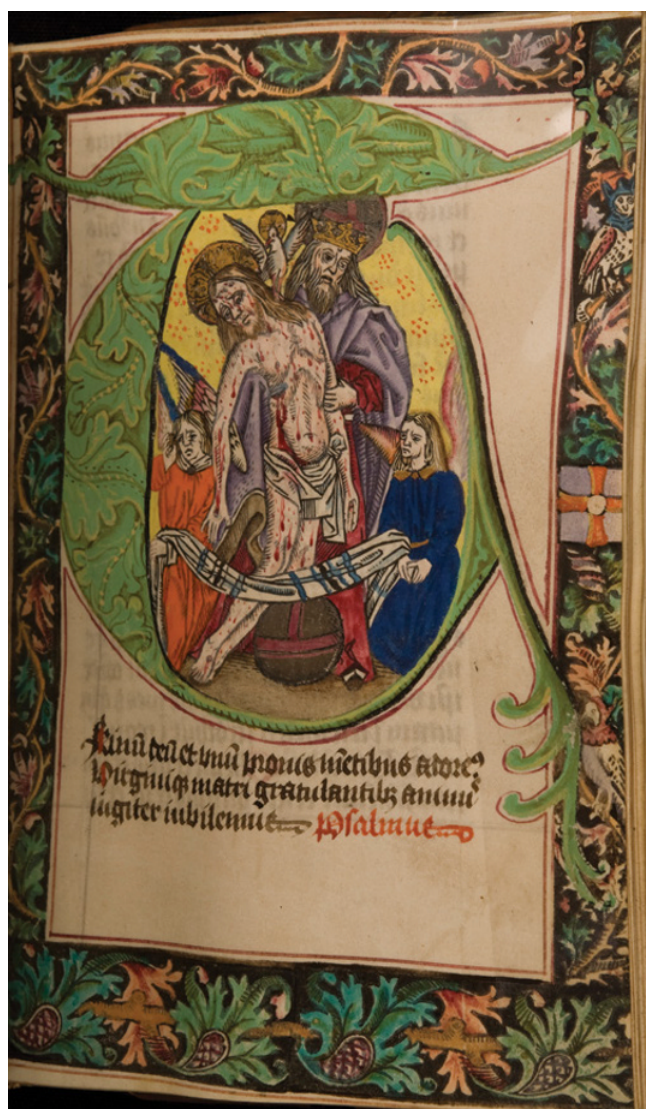 TRinū deū et vnū pronis mētibus adorem⁹
Virginiqꝫ matri gratulantibꝫ animis
iugiter iubilemus Psalmus